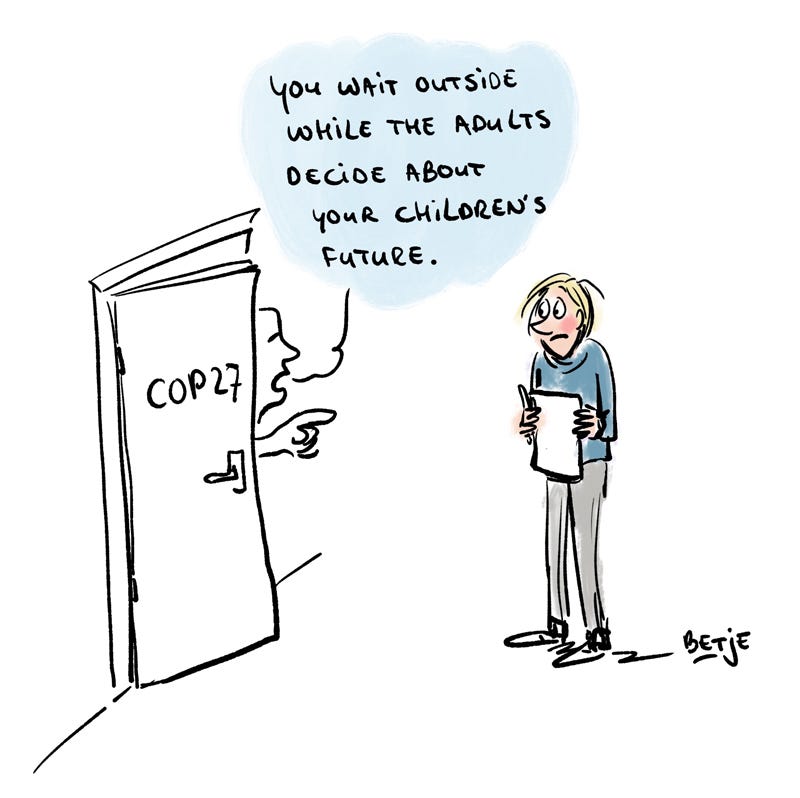 YOU WAIT OUTSIDE
WHILE THE ADULTS
DECIDE ABOUT
YOUR CHILDREN'S
FUTURE.
COP27
BETJE